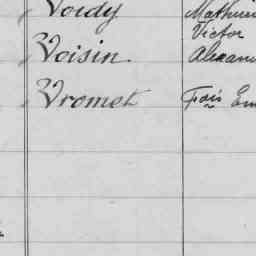 Voidy Mathurin
Victor
Voisin Alexan
Vromet Fçois Em